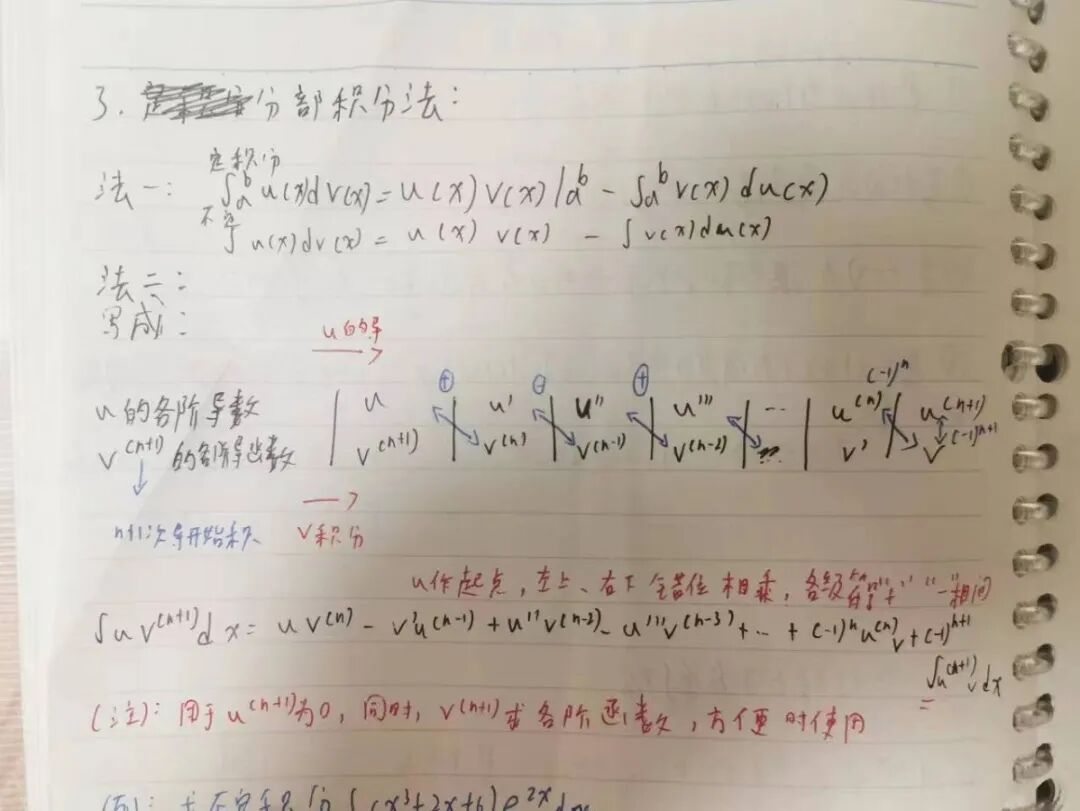 3. 分部积分法:
定积分
法一: ∫ₐᵇ u(x)dv(x) = u(x) v(x) |ₐᵇ - ∫ₐᵇ v(x) du(x)
不定
∫ u(x)dv(x) = u(x) v(x) - ∫ v(x)du(x)
法二:
写成:
u的导
⊕ ⊖ ⊕ (-1)ⁿ
u的各阶导数 | u | u' | u'' | u''' | ... | u⁽ⁿ⁾ | u⁽ⁿ⁺¹⁾
v⁽ⁿ⁺¹⁾的各阶导数 | v⁽ⁿ⁺¹⁾ | v⁽ⁿ⁾ | v⁽ⁿ⁻¹⁾ | v⁽ⁿ⁻²⁾ | ... | v' | v (-1)ⁿ⁺¹
n+1次导开始积 v积分
u作起点, 左上、右下错位相乘, 各级 "+" "-" 相间
∫uv⁽ⁿ⁺¹⁾dx = uv⁽ⁿ⁾ - v'u⁽ⁿ⁻¹⁾ + u''v⁽ⁿ⁻²⁾ - u'''v⁽ⁿ⁻³⁾ + ... + (-1)ⁿu⁽ⁿ⁾v + (-1)ⁿ⁺¹
∫u⁽ⁿ⁺¹⁾vdx
=
(注): 用于u⁽ⁿ⁺¹⁾为0, 同时, v⁽ⁿ⁺¹⁾求各阶函数, 方便时使用
(例): 求不定积分 ∫(x³+2x+6)e²ˣdx